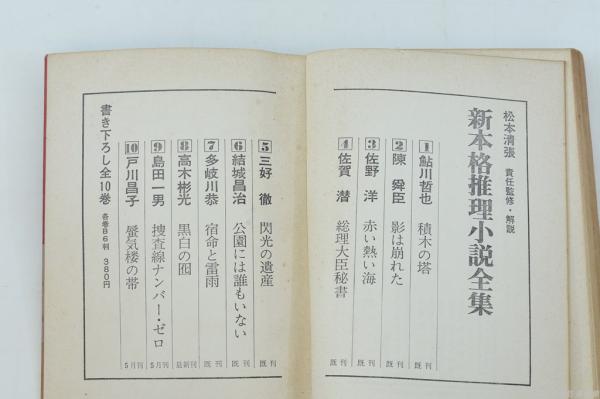 松本清張 責任監修・解説
新本格推理小説全集
1 鮎川哲也 積木の塔 既刊
2 陳 舜臣 影は崩れた 既刊
3 佐野 洋 赤い熱い海 既刊
4 佐賀 潜 総理大臣秘書 既刊
5 三好 徹 閃光の遺産 既刊
6 結城昌治 公園には誰もいない 既刊
7 多岐川恭 宿命と雷雨 既刊
8 高木彬光 黒白の囮 最新刊
9 島田一男 捜査線ナンバー・ゼロ 5月刊
10 戸川昌子 蜃気楼の帯 5月刊
書き下ろし全10巻 各巻B6判 380円